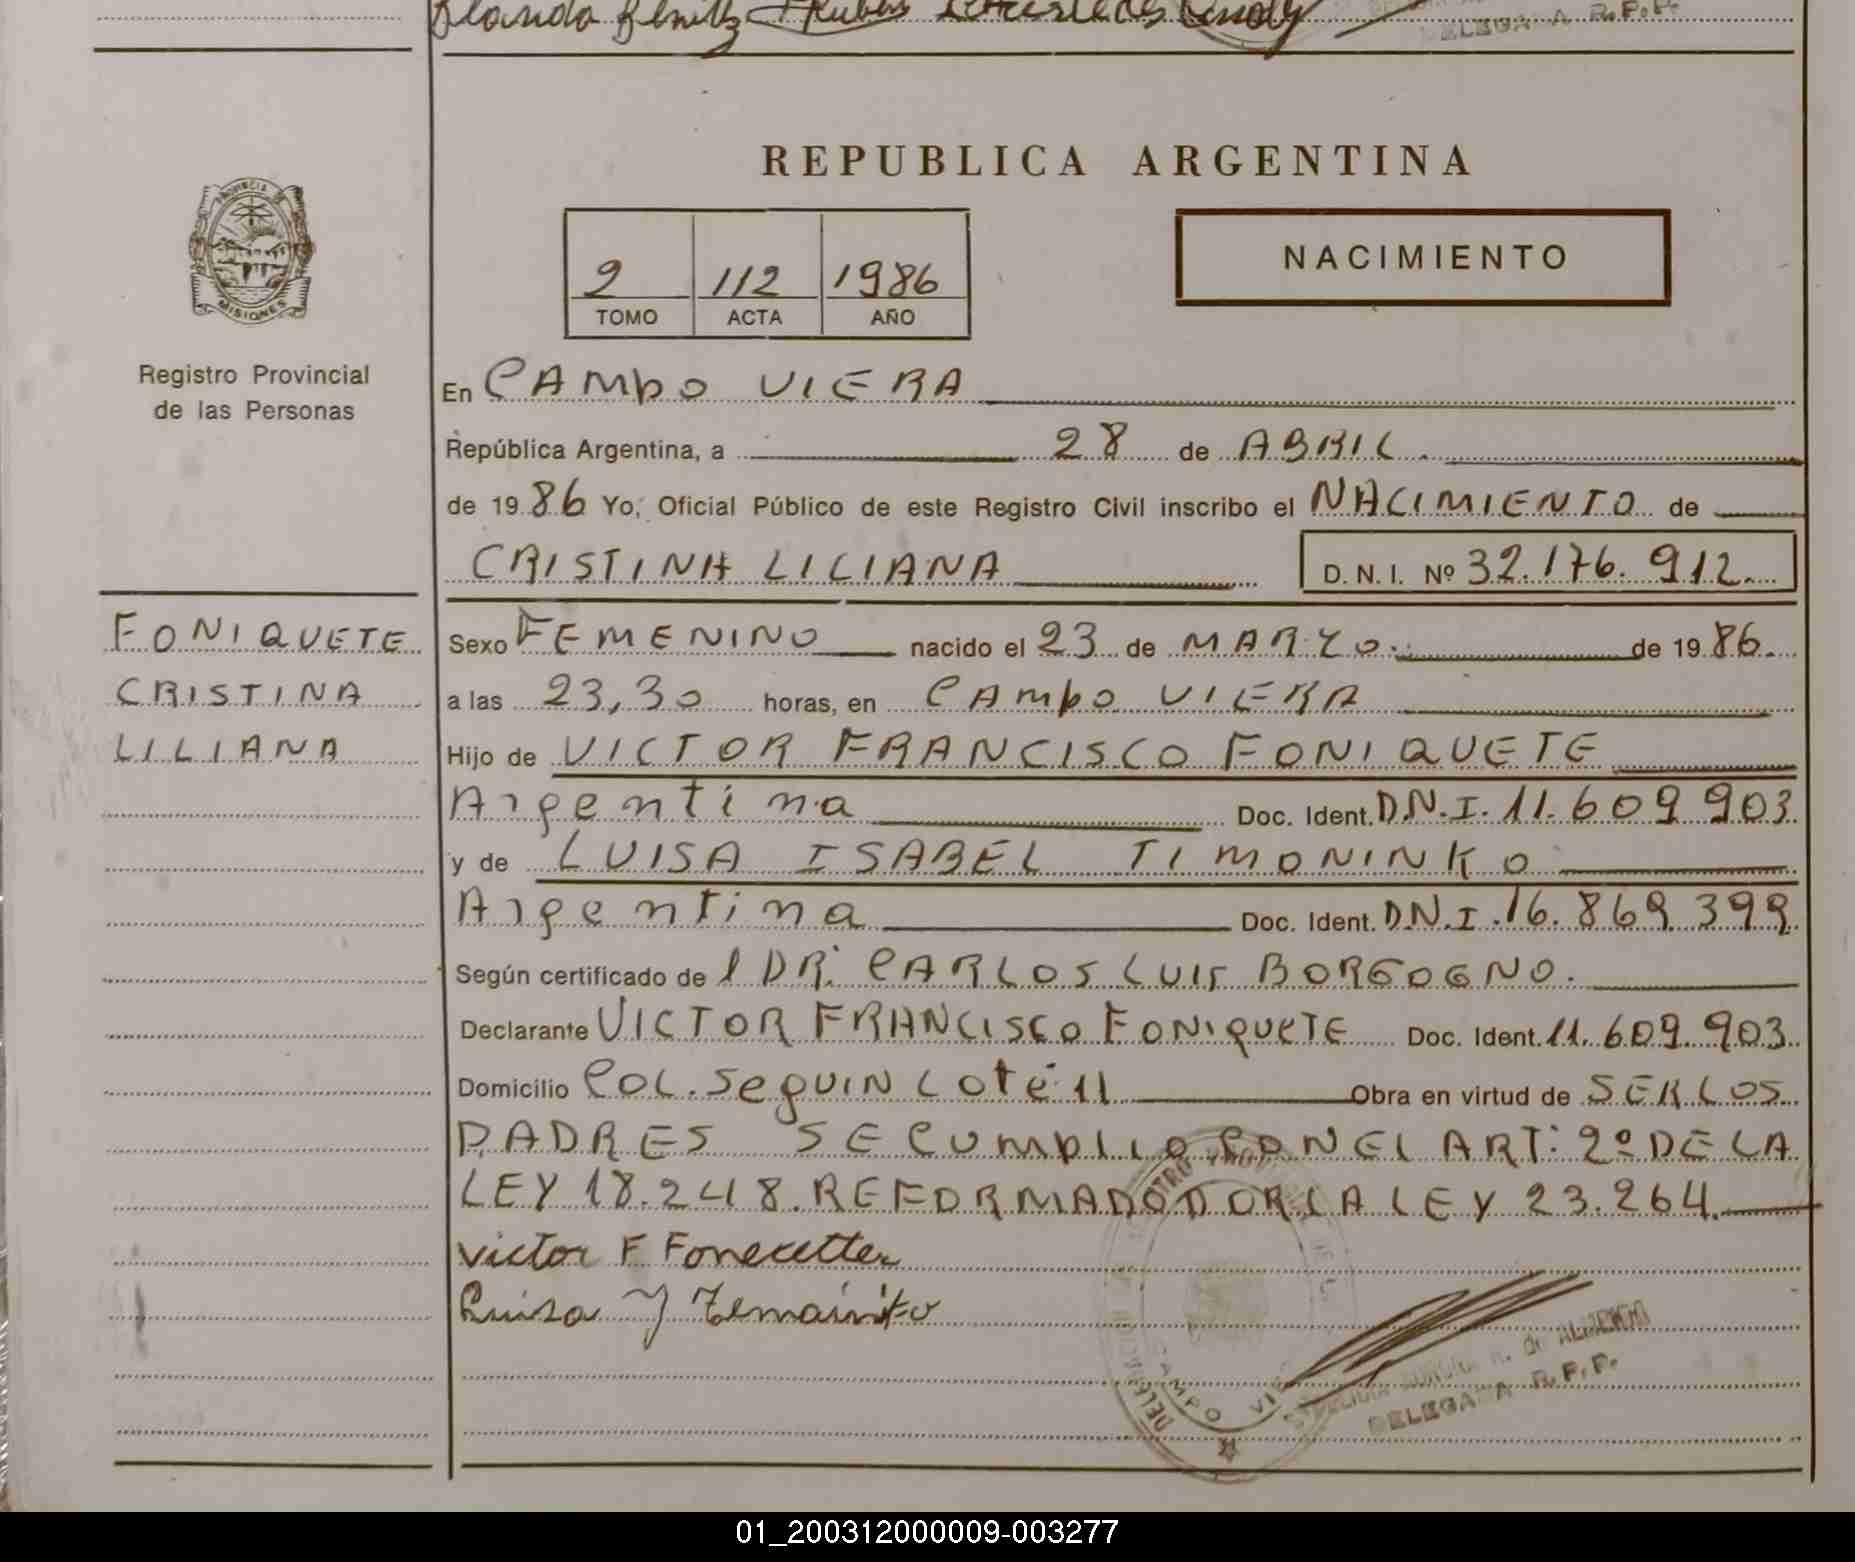 DELEGADA R.P.P.
REPUBLICA ARGENTINA
PROVINCIA DE
MISIONES
Registro Provincial
de las Personas
2 112 1986
TOMO ACTA AÑO
NACIMIENTO
En CAMPO VIERA
República Argentina, a 28 de ABRIL
de 1986 Yo, Oficial Público de este Registro Civil inscribo el NACIMIENTO de
CRISTINA LILIANA D.N.I. Nº 32.176.912.
FONIQUETE
CRISTINA
LILIANA
Sexo FEMENINO nacido el 23 de MARZO. de 1986.
a las 23,30 horas, en CAMPO VIERA
Hijo de VICTOR FRANCISCO FONIQUETE
Argentina Doc. Ident. D.N.I. 11.609903
y de LUISA ISABEL TIMONINKO
Argentina Doc. Ident. D.N.I. 16.869.399
Según certificado de l DR. CARLOS LUIS BORGOGNO.
Declarante VICTOR FRANCISCO FONIQUETE Doc. Ident. 11.609.903
Domicilio COL. SEGUIN LOTE 11 Obra en virtud de SER LOS
PADRES SE CUMPLIO CON EL ART: 2º DE LA
LEY 18.248. REFORMADO POR LA LEY 23.264.
Victor F Fonecetter
Luisa Y
CAMPO
DELEGADA R.P.P.
01_200312000009-003277